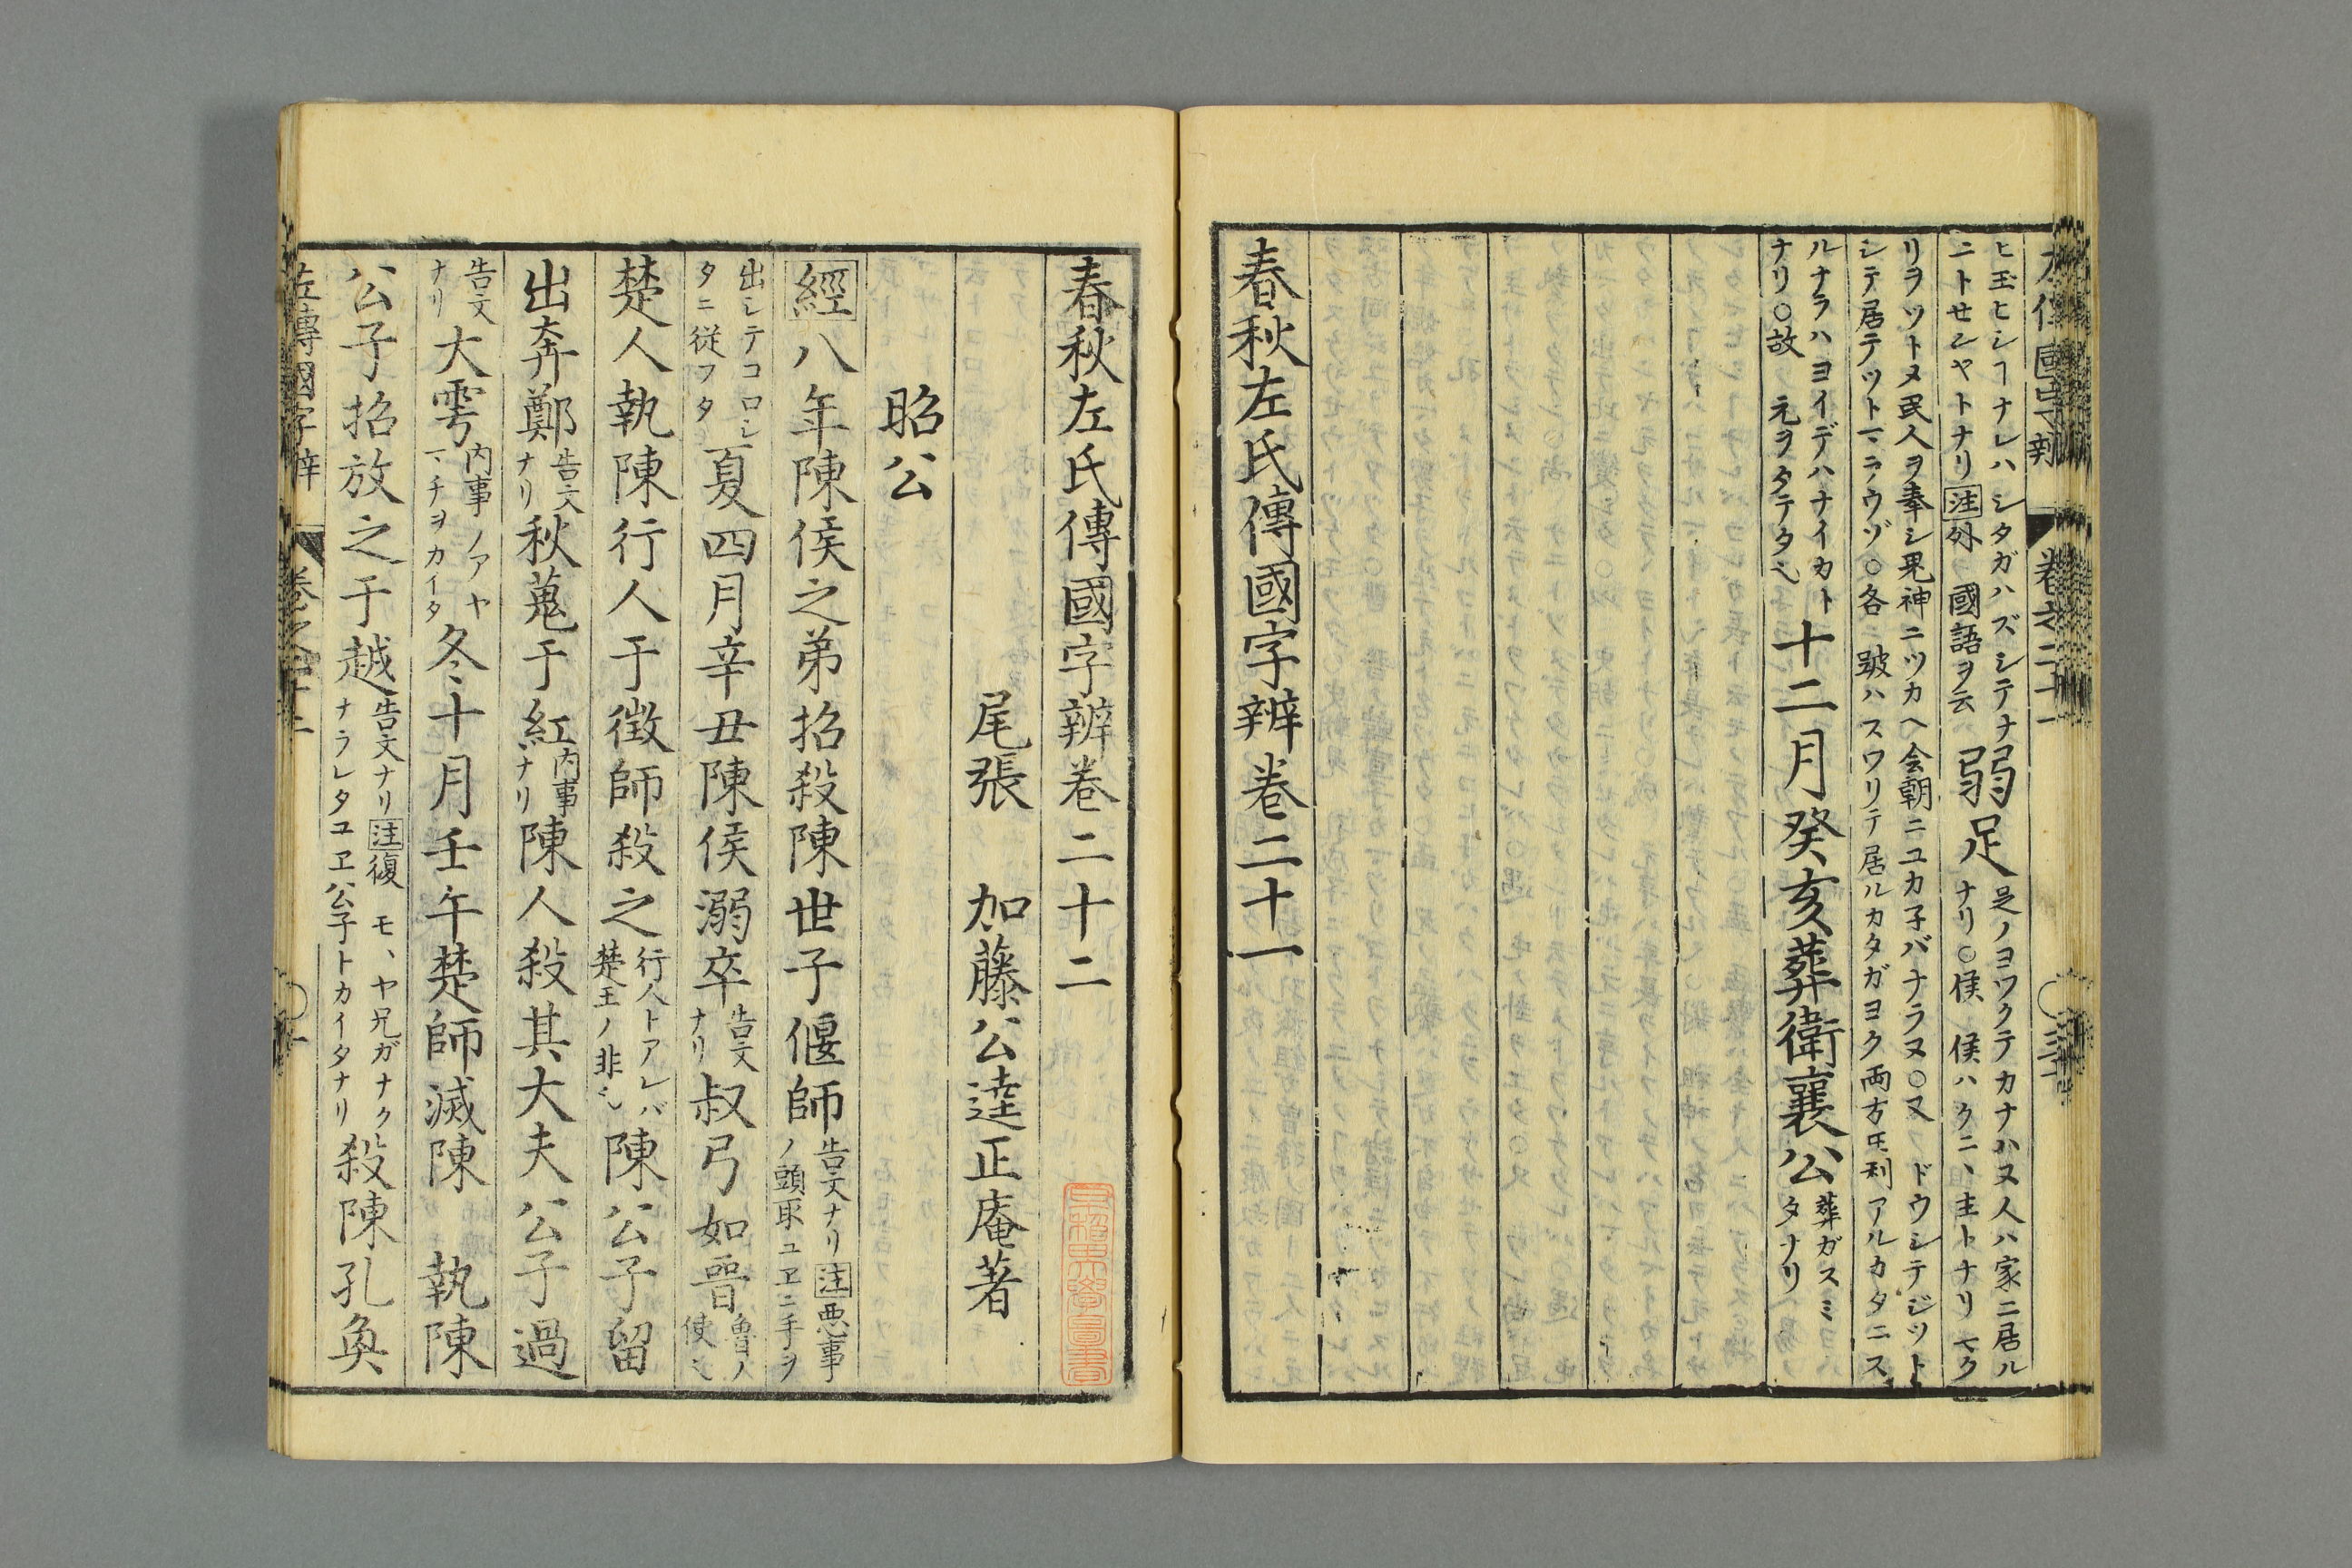 ヒ玉ヒシヿナレハシタガハズシテナ
ニトせシヤトナリ注外國語ヲ云
弱足
足ノヨワクテカナハヌ人ハ家ニ居ル
ナリ○侯侯ハクニ、主トナリ
リヲツトヌ民人ヲ奉シ鬼神ニツカヘ会朝ニユカ子バナラヌ○又ドウシテジツト
シテ居テ○各跛ハスワリテ居ルカタガヨク両方圧利アルカタニス
ルナラハヨイデハナイカト
ナリ○故元ヲタテタ
十二月癸亥葬衛襄公
葬ガスミ
タナリ
春秋左氏傳國字辨卷二十一
春秋左氏傳國字辨卷二十二
尾張 加藤公逵正庵著
昭公
經八年陳侯之弟招殺陳世子偃師
告文ナリ注悪事
ノ頭取ユヱニ手ヲ
出シテコロシ
タニ従フタ
夏四月辛丑陳侯溺卒
告文
ナリ
叔弓如晉
魯ノ
使
楚人執陳行人于徵師殺之
行人トアレバ
楚王ノ非
陳公子留
出奔鄭
告文
ナリ
秋蒐于紅
内事
ナリ
陳人殺其大夫公子過
告文
ナリ
大雩
内事ノアヤ
マチヲカイタ
冬十月壬午楚師滅陳 執陳
公子招放之于越
告文ナリ注復モ、ヤ兄ガナク
ナラレタユヱ公子トカイタナリ
殺陳孔奐